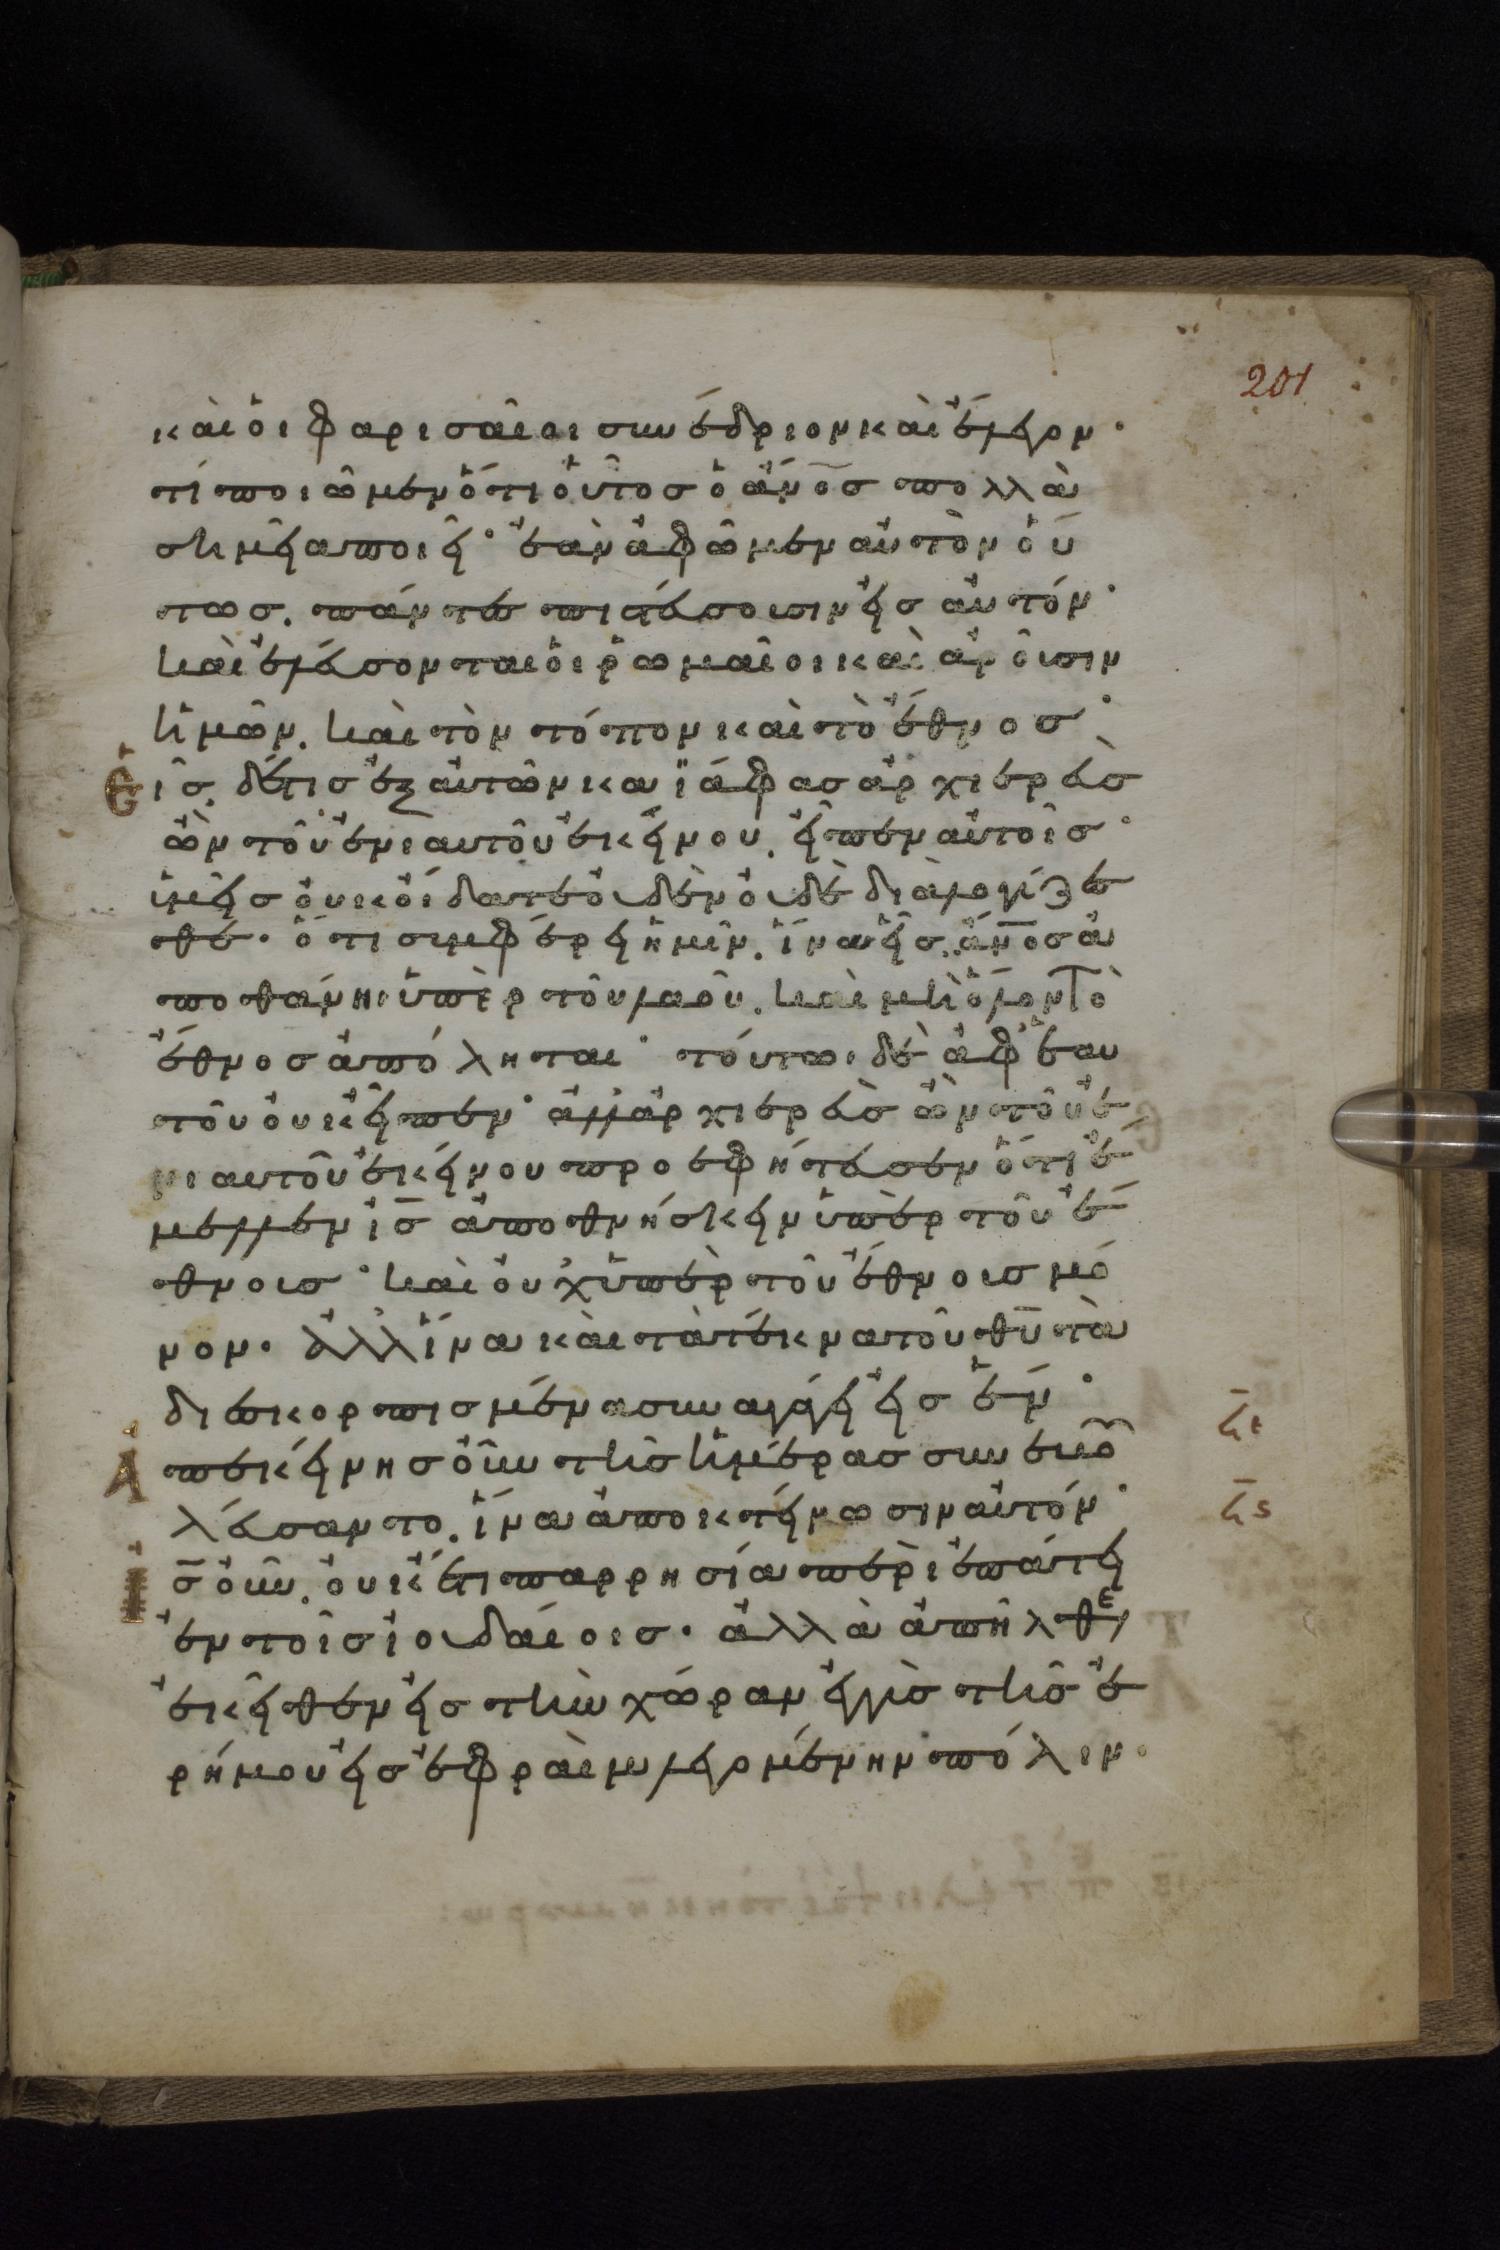 201
καὶ ὁι φαρισαῖοι συνέδριον καὶ ἔλεγον·
τί ποιῶμεν ὅτι οὗτος ὁ ἄν̅ο̅ς πολλὰ
σημεῖα ποιεῖ· ἐὰν ἀφῶμεν αὐτὸν ὅυ
τως. πάντες πιστεύσουσιν εἰς αὐτόν·
καὶ ἐλεύσονται ὁι ῥωμαῖοι καὶ ἀροῦσιν
ἡμῶν. καὶ τὸν τόπον καὶ τὸ ἔθνος·
Εἷς δέ τις ἐξ αὐτῶν καϊάφας ἀρχιερεὺς
ὢν τοῦ ἐνιαυτοῦ ἐκείνου. εἶπεν αὐτοῖς·
ὑμεῖς οὐκ οἴδατε οὐδὲν οὐδὲ διαλογίζε
σθε· ὅτι συμφέρει ἡμῖν. ἵνα εἷς ἄν̅ο̅ς ἀ
ποθάνηι ὑπὲρ τοῦ λαοῦ. καὶ μὴ ὅλον τὸ
ἔθνος ἀπόληται· τοῦτωι δὲ ἀφ' ἑαυ
τοῦ οὐκ εἶπεν· ἀλλ' ἀρχιερεὺς ὢν τοῦ ἐ
νιαυτοῦ ἐκείνου προεφήτευσεν ὅτι ἔ
μελλεν ι̅ς̅ ἀποθνήσκειν ὑπὲρ τοῦ ἔ
θνους· καὶ οὐχ ὑπὲρ τοῦ ἔθνους μό
νον· ἀλλ' ἵνα καὶ τὰ τέκνα τοῦ θ̅υ̅ τὰ
διεσκορπισμένα συναγάγει εἰς ἕν·
Ἀπ' ἐκείνης οὖν τῆς ἡμέρας συνεβου
λεύσαντο. ἵνα ἀποκτείνωσιν αὐτόν·
Ἰ̅ς̅ οὖν. οὐκ έτι παρρησία περὶ επάτει
ἐν τοῖς ἰουδαίοις· ἀλλὰ ἀπῆλθεν
ἐκεῖθεν εἰς τὴν χώραν ἐγγὺς τῆς ἐ
ρήμου εἰς ἐφραὶμ λεγομένην πόλιν·